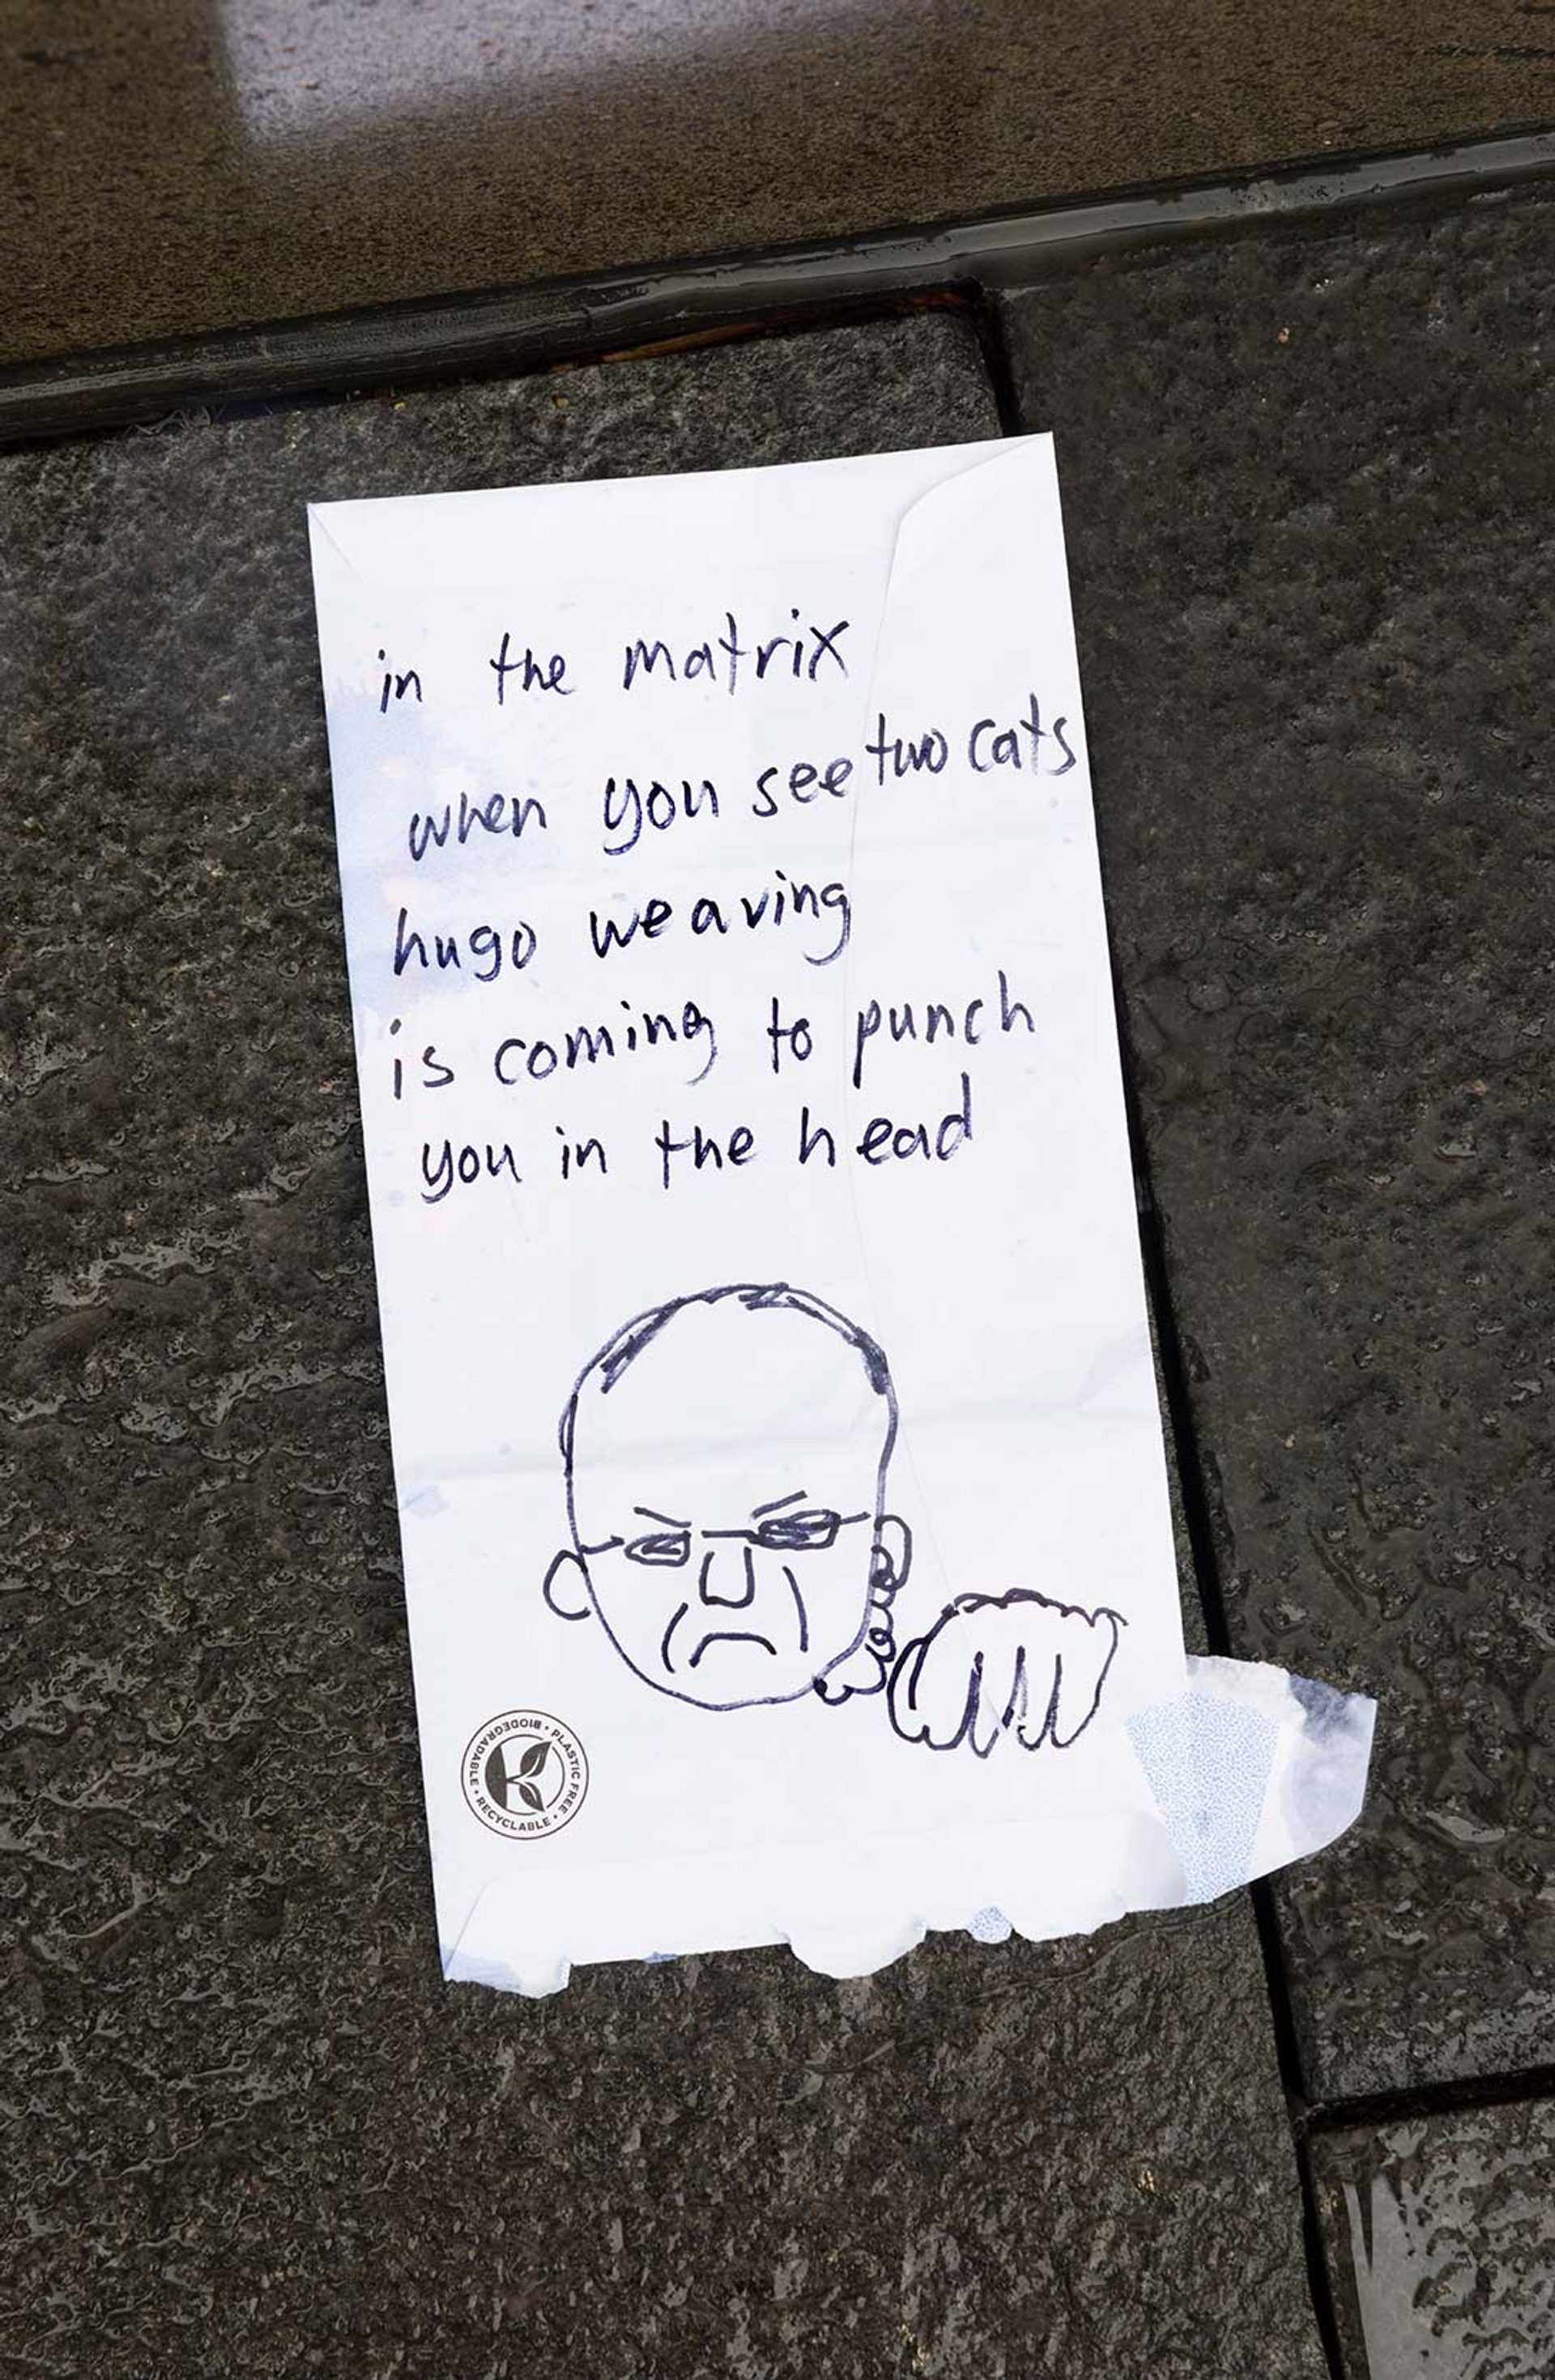 in the matrix
when you see two cats
hugo weaving
is coming to punch
you in the head
BIODEGRADABLE • PLASTIC FREE • RECYCLABLE •